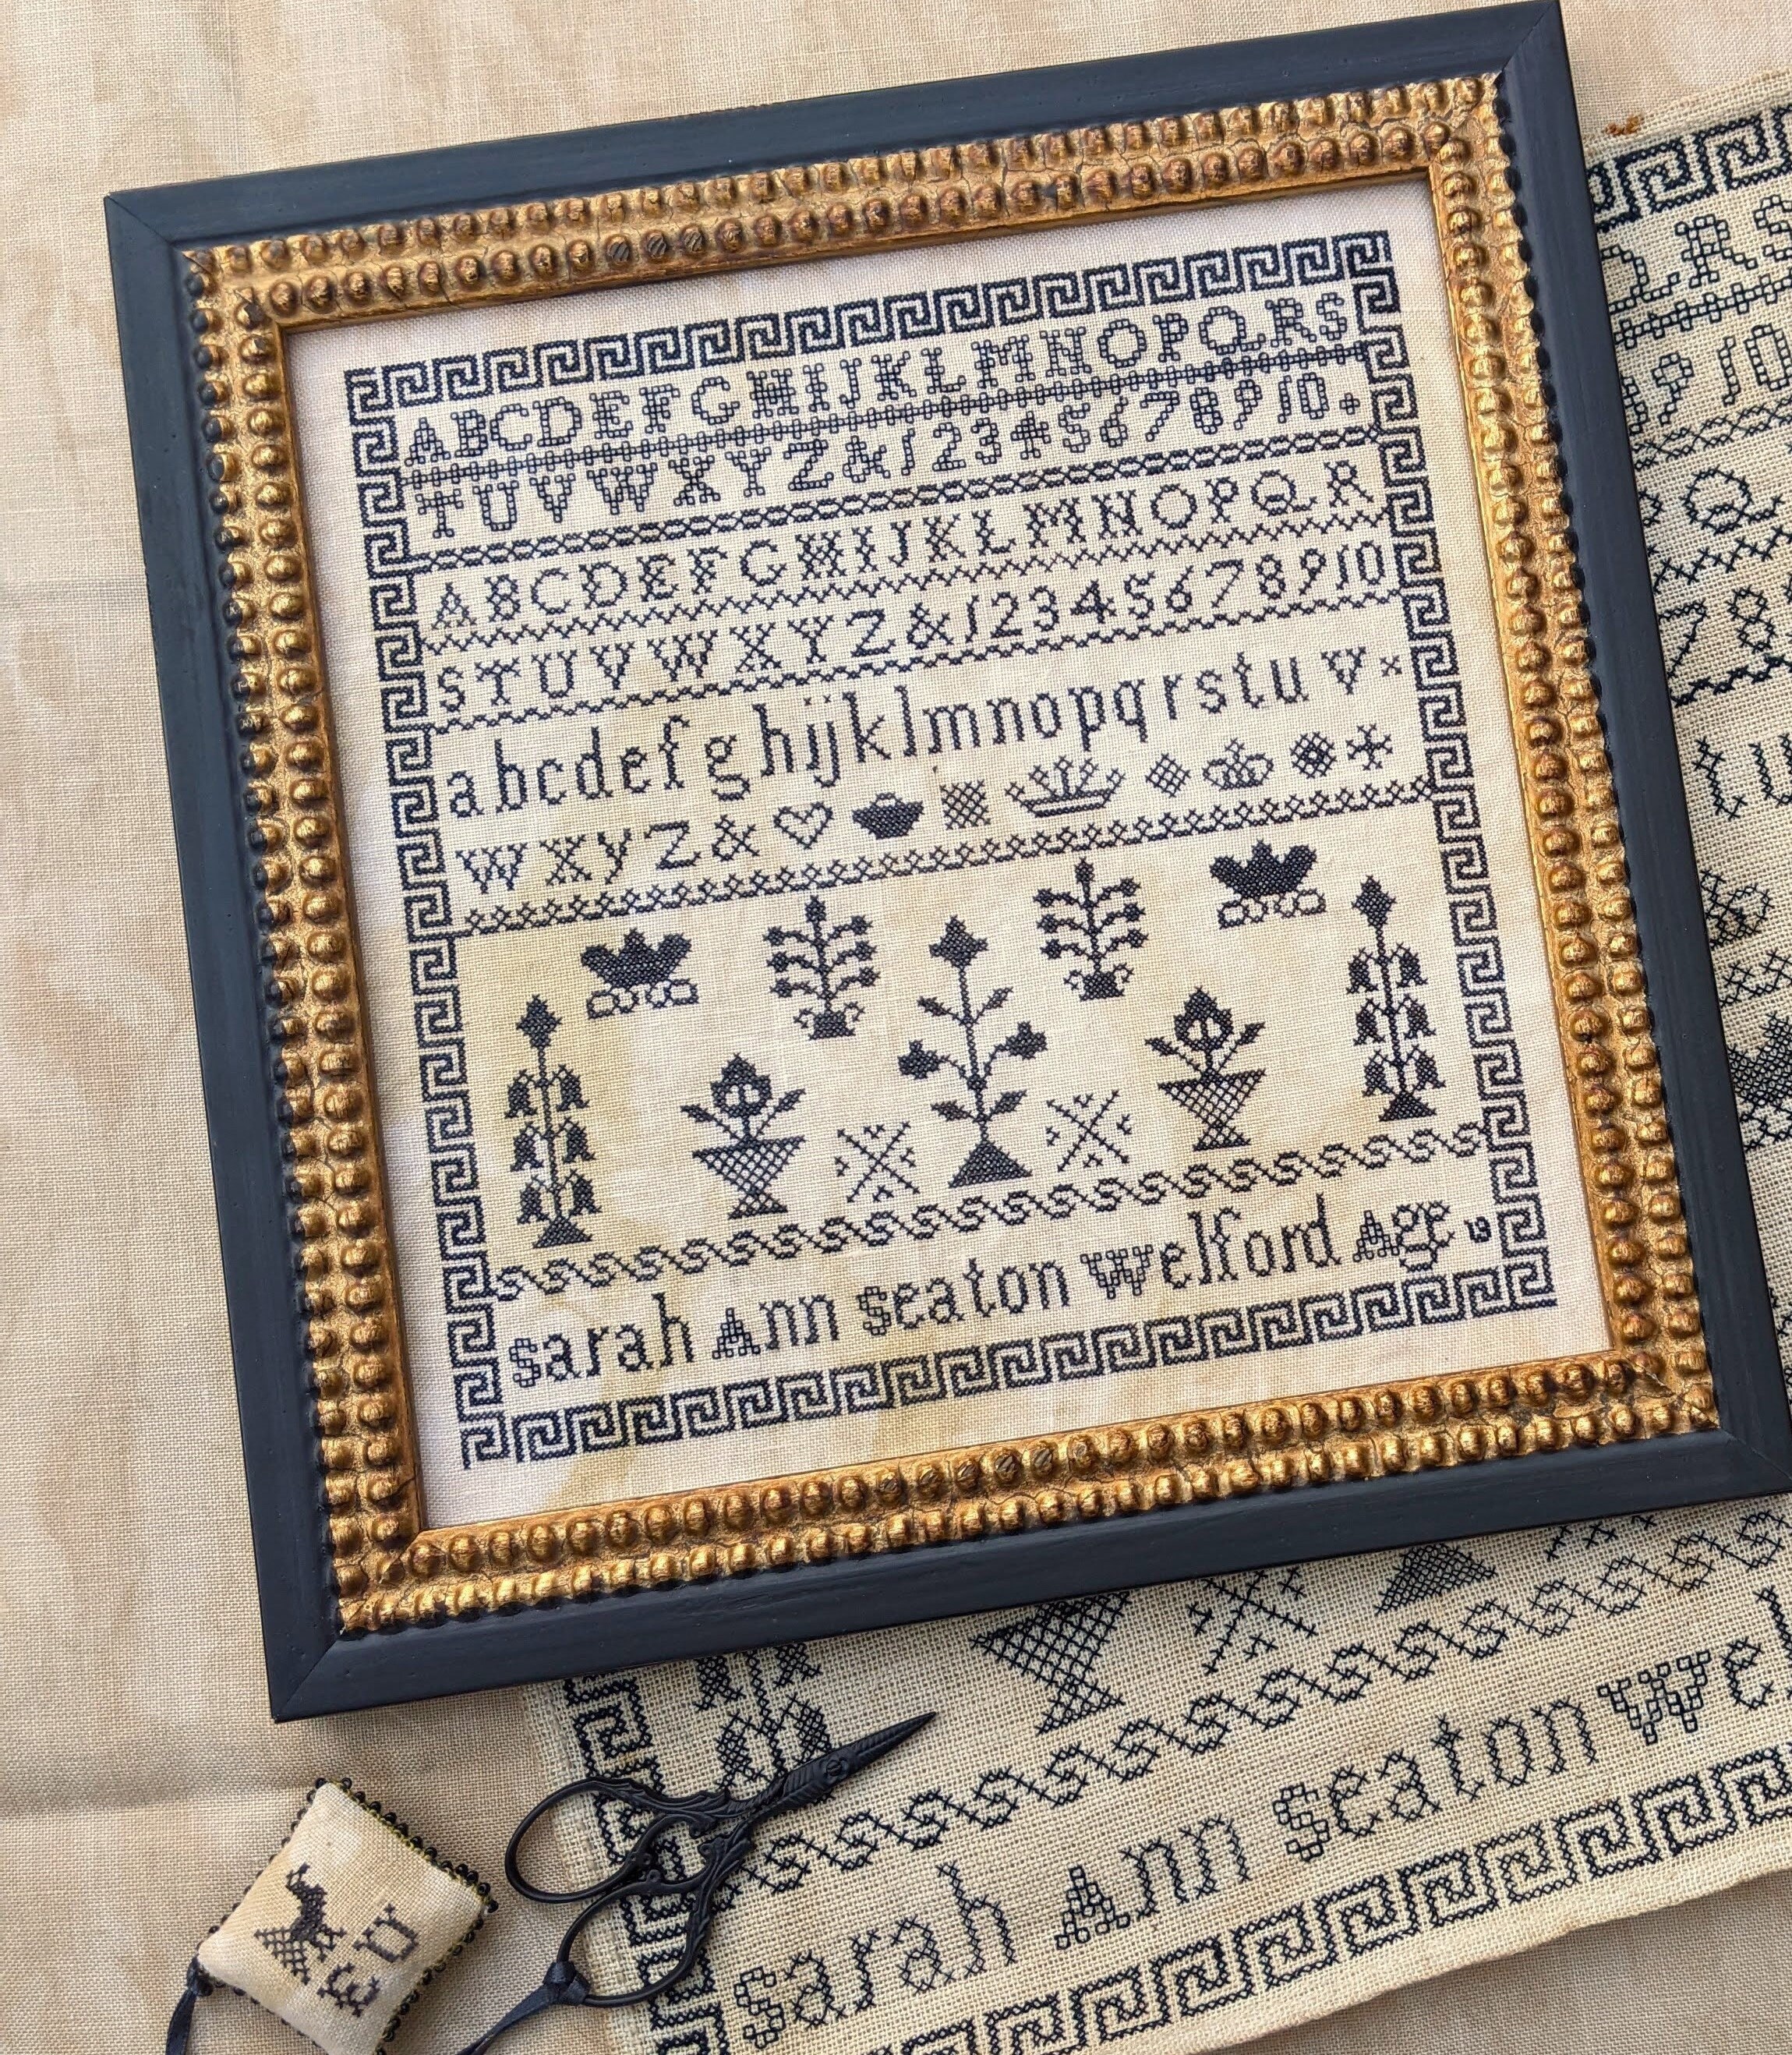 ABCDEFGHIJKLMNOPQRS
TUVWXYZ&12345678910
ABCDEFGHIJKLMNOPQR
STUVWXYZ&12345678910
abcdefghijklmnopqrstuv
wxyz&
Sarah Ann Seaton Welford Age 13
QRS
910
Q
78
tu
Sarah Ann Seaton Wel